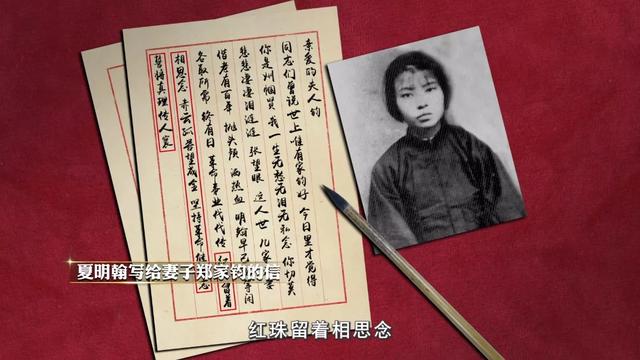 亲爱的夫人钧
同志们曾说世上唯有家钧好 今日里才觉得
你是巾帼贤 我一生无愁无泪无私念 你切莫
悲悲凄凄泪涟涟 张望眼 这人世 几家
偕老有百年 抛头颅 洒热血 明翰早已 等闲
各取所需 终有日 革命事业代代传 红 留着
相思念 赤云孤苦望成全 坚持革命继
誓将真理传人寰
夏明翰写给妻子郑家钧的信
红珠留着相思念